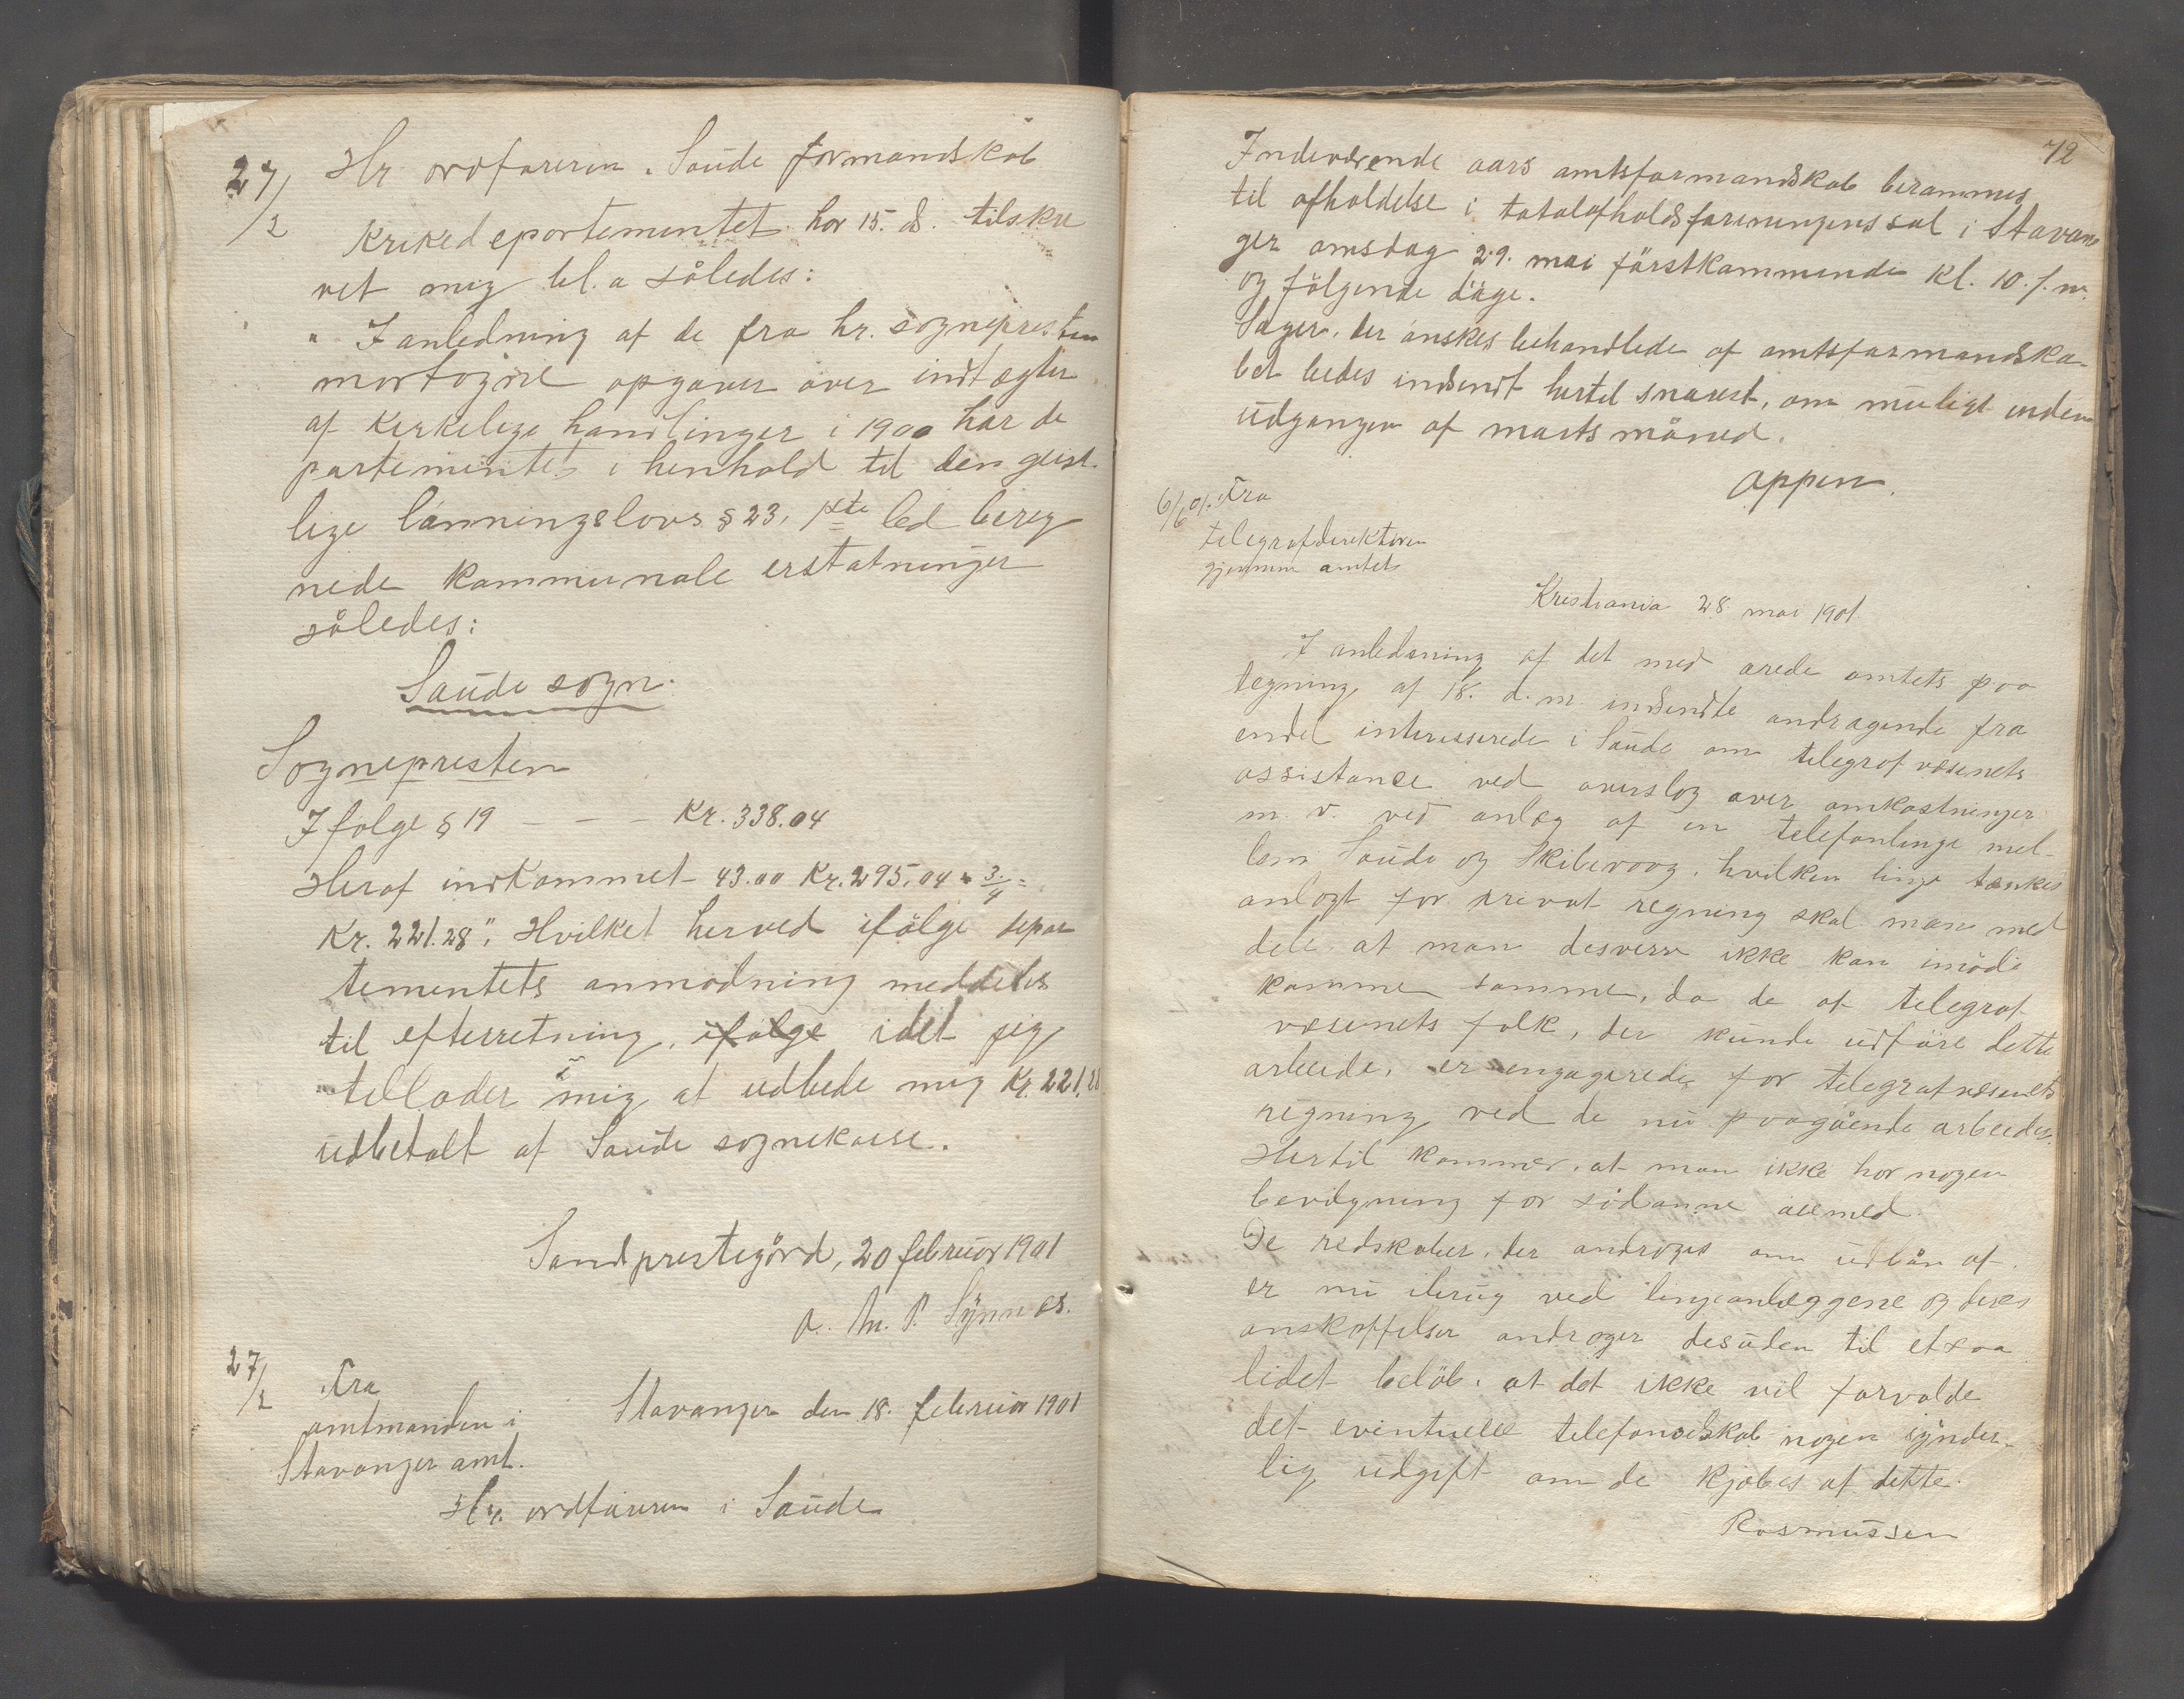 27/2
Hr ordføreren i Saude formandskab
Krikedepartementet har 15. ds. tilskre
vet mig bl.a således:
" I anledning af de fra hr. sognepresten
mortogne opgaver over indtægter
af kirkelige handlinger i 1900 har de
partementet i henhold til den geist
lige lønningslovs § 23, 1ste led bereg
nede kommunale erstatninger
således:
Saude sogn.
Sognepresten
Ifølge § 19 – – – Kr. 338.04
Heraf indkommet 43.00 Kr. 295.04 · 3/4 =
Kr. 221.28". Hvilket herved ifølge depar
tementets anmodning meddeles
til efterretning, ifølge idet jeg
tillader mig at udbede mig Kr. 221.28
udbetalt af Saude sognekasse.
Sandprestegård, 20 februar 1901
A. M. P. Synnes.
27/2
Fra
amtmanden i
Stavanger amt.
Stavanger den 18. februar 1901
Hr. ordføreren i Saude
72
Indeværende aars amtsformandskab berammes
til afholdelse i totalafholdsforeningens sal i Stavan
ger onsdag 29. mai førstkommende kl. 10 f.m.
og følgende dage.
Sager, der ønskes behandlede af amtsformandska-
bet bedes indsendt hertil snarest, om muligt inden
udgangen af marts måned.
Oppen.
6/6 01. Fra
telegrafdirektøren
gjennem amtet
Kristiania 28 mai 1901
I anledning af det med ærede amtets paa
tegning af 18. d.m. indsendte andragende fra
endel interesserede i Saude om telegrafvæsenets
assistance ved overslag over omkostninger
m. v. ved anlæg af en telefonlinje mel-
lem Saude og Skibevaag, hvilken linje tænkes
anlagt for privat regning skal man med
dele, at man desverre ikke kan imøde
komme samme, da de af telegraf
væsenets folk, der kunde udføre dette
arbeide, er engagerede for telegrafvæsenets
regning ved de nu paagående arbeider.
Hertil kommer, at man ikke har nogen
bevilgning for sådanne øiemed
De redskaber, der androges om udlån af
er nu ibrug ved linjeanlæggene og deres
anskaffelse androger desuden til et saa
lidet beløb, at det ikke vil forvolde
det eventuelle telefonselskab nogen synder-
lig udgift om de kjøbes af dette.
Rasmussen